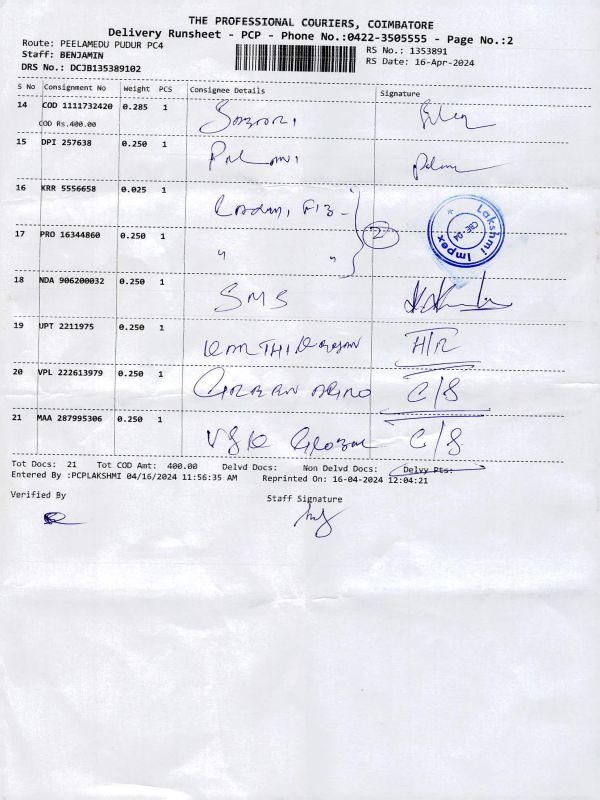 THE PROFESSIONAL COURIERS, COIMBATORE
Delivery Runsheet - PCP - Phone No.:0422-3505555 - Page No.:2
Route: PEELAMEDU PUDUR PC4
RS No.: 1353891
Staff: BENJAMIN
RS Date: 16-Apr-2024
DRS No.: DCJB135389102
S No Consignment No Weight PCS Consignee Details Signature
14 COD 1111732420 0.285 1
COD Rs.400.00
15 DPI 257638 0.250 1
16 KRR 5556658 0.025 1
17 PRO 16344860 0.250 1 " " 2
Lakshmi Impex CBE-04
18 NDA 906200032 0.250 1 SMS
19 UPT 2211975 0.250 1 H/R
20 VPL 222613979 0.250 1 GREEN AGRO C/S
21 MAA 287995306 0.250 1 C/S
Tot Docs: 21 Tot COD Amt: 400.00 Delvd Docs: Non Delvd Docs: Delvy Pts:
Entered By :PCPLAKSHMI 04/16/2024 11:56:35 AM Reprinted On: 16-04-2024 12:04:21
Verified By
Staff Signature